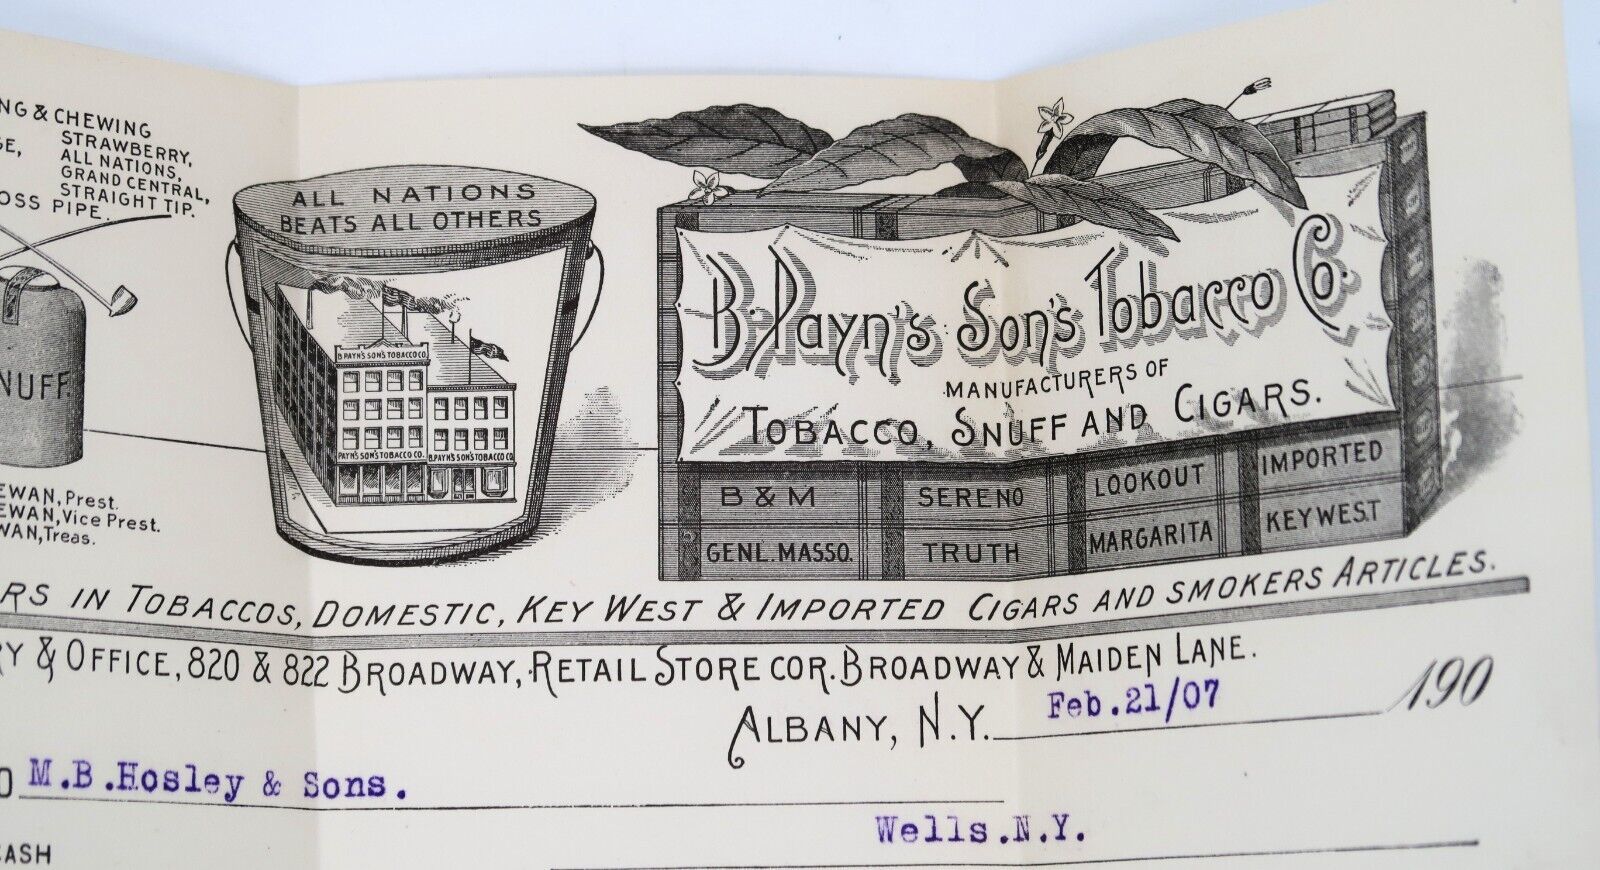 NG & CHEWING
STRAWBERRY,
GE, ALL NATIONS,
GRAND CENTRAL,
STRAIGHT TIP.
OSS PIPE.
NUFF.
EWAN, Prest.
EWAN, Vice Prest.
WAN, Treas.
ALL NATIONS
BEATS ALL OTHERS
B. PAYN'S SON'S TOBACCO CO.
PAYN'S SON'S TOBACCO CO.
B. PAYN'S SON'S TOBACCO CO.
B. Payn's Son's Tobacco Co.
MANUFACTURERS OF
TOBACCO, SNUFF AND CIGARS.
B & M SERENO LOOKOUT IMPORTED
GENL. MASSO. TRUTH MARGARITA KEY WEST
RS IN TOBACCOS, DOMESTIC, KEY WEST & IMPORTED CIGARS AND SMOKERS ARTICLES.
RY & OFFICE, 820 & 822 BROADWAY, RETAIL STORE COR. BROADWAY & MAIDEN LANE.
ALBANY, N.Y. Feb.21/07 190
O M.B.Hosley & Sons.
Wells.N.Y.
CASH